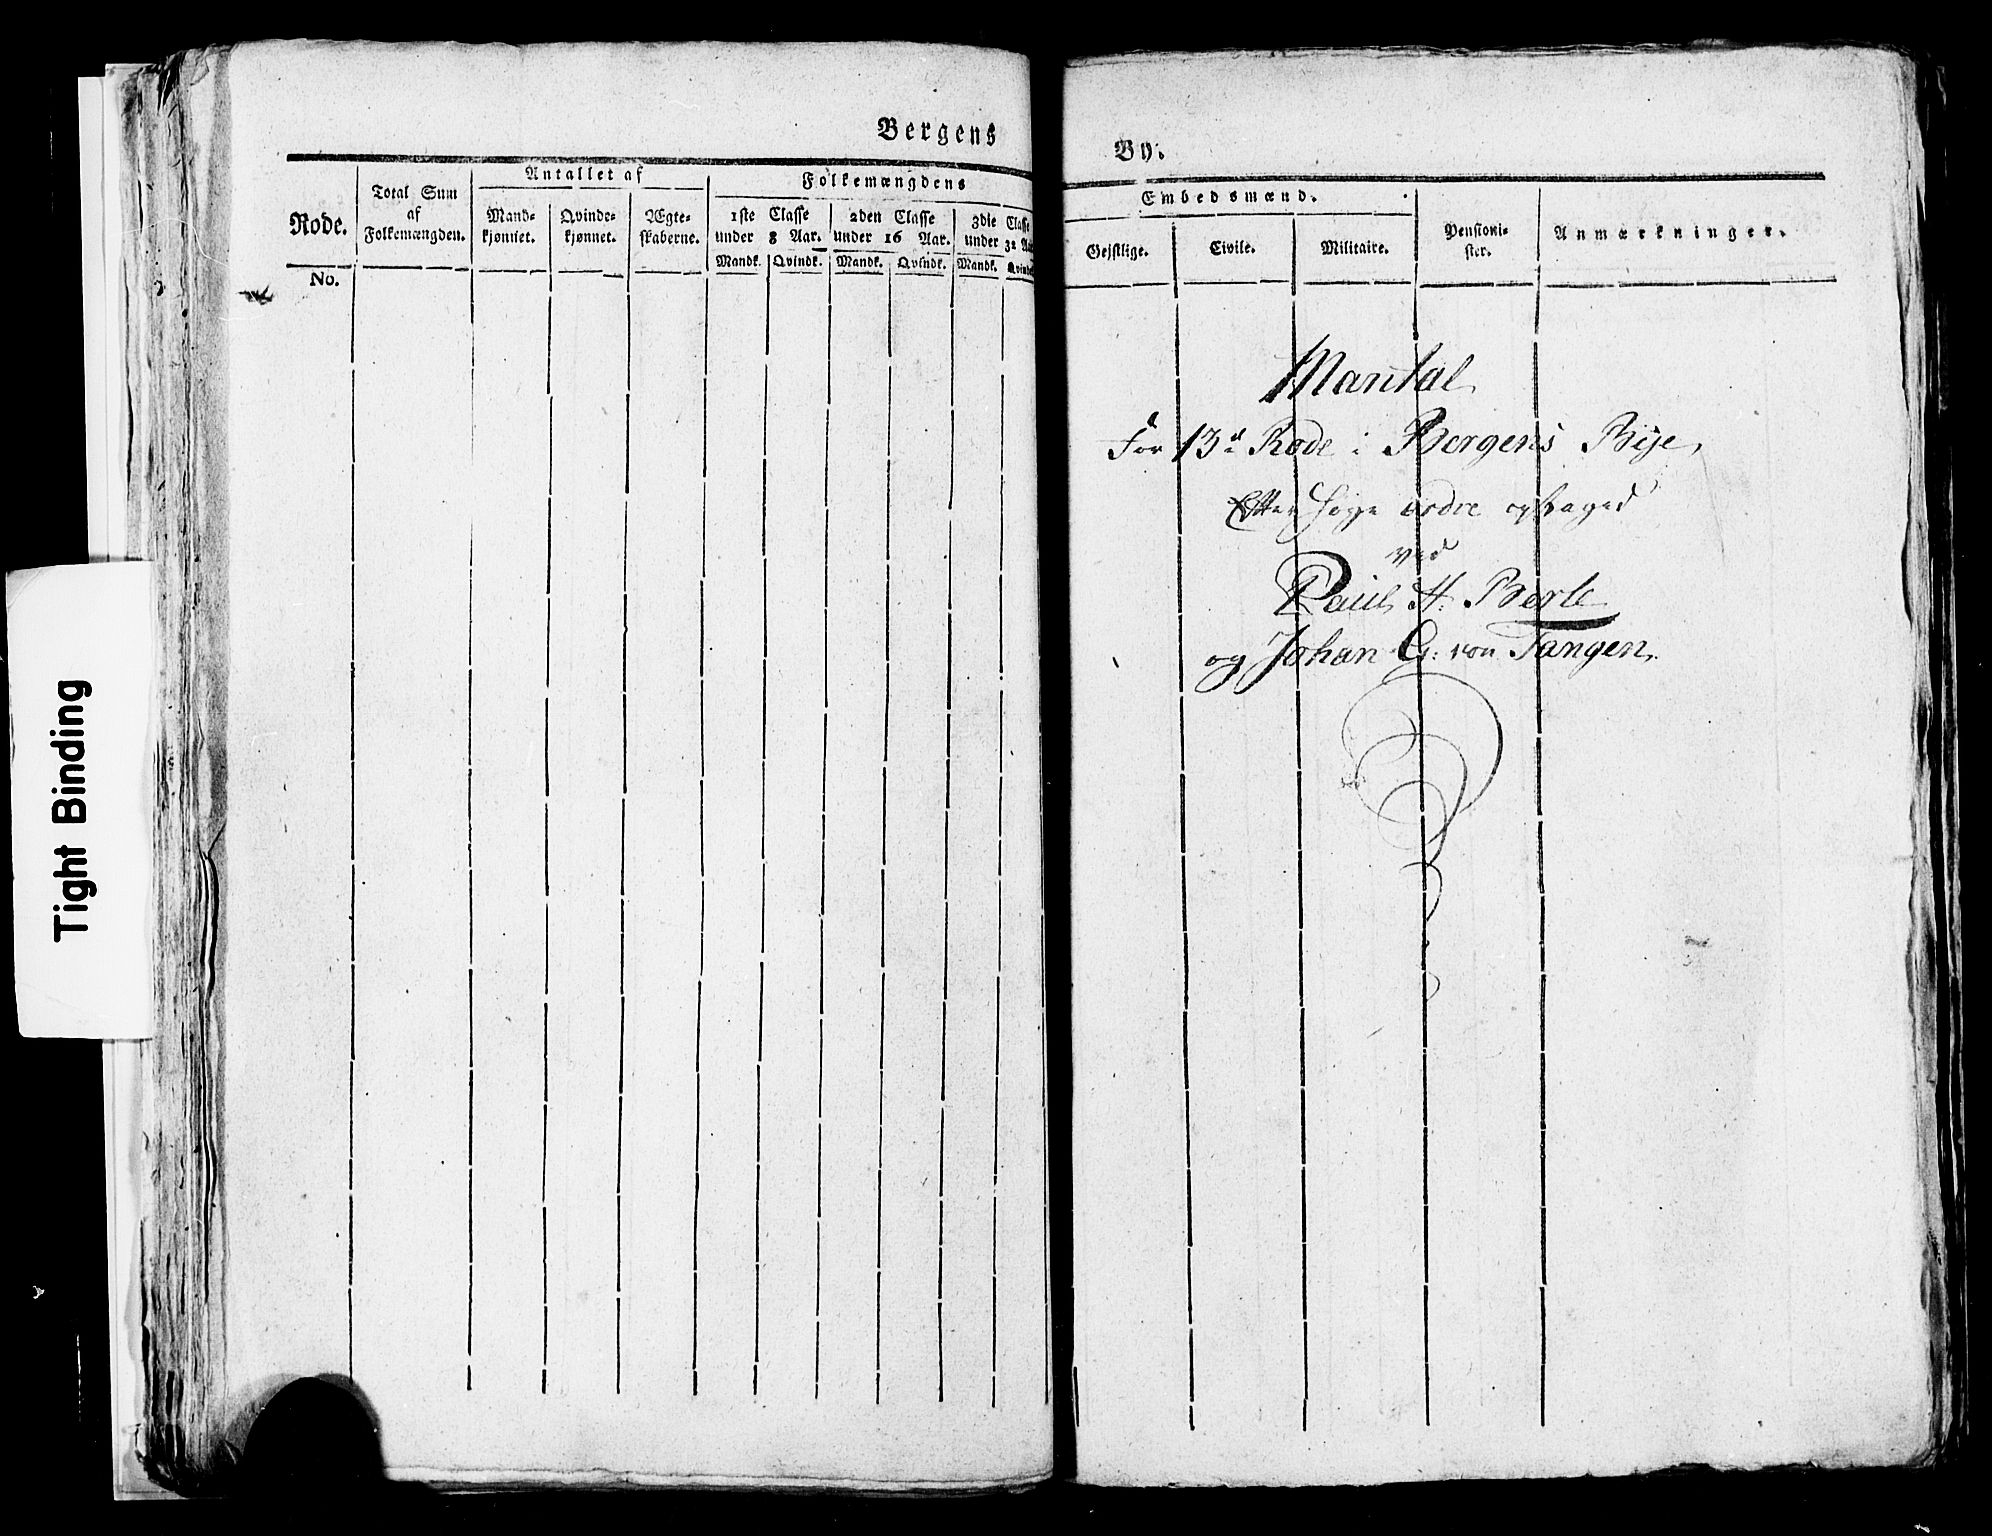 Bergens
Rode.
Total Sum
af
Folkemængden.
Antallet af
Mand-
kjønnet.
Qvinde-
kjønnet.
Ægte-
skaberne.
Folkemængdens
1ste Classe
under 8 Aar.
2den Classe
under 16 Aar.
3die Classe
under 32 Aar
Mandk. Qvindk. Mandk. Qvindk. Mandk. Qvindk
No.
By.
Embedsmænd.
Gejstlige.
Civile.
Militaire.
Pensioni-
ster.
Anmærkninger.
Mantal
For 13d Rode i Bergens Bye,
Efter høye ordre optaged
ved
Paul H. Berle
og Johan G: von Tangen.
Tight Binding